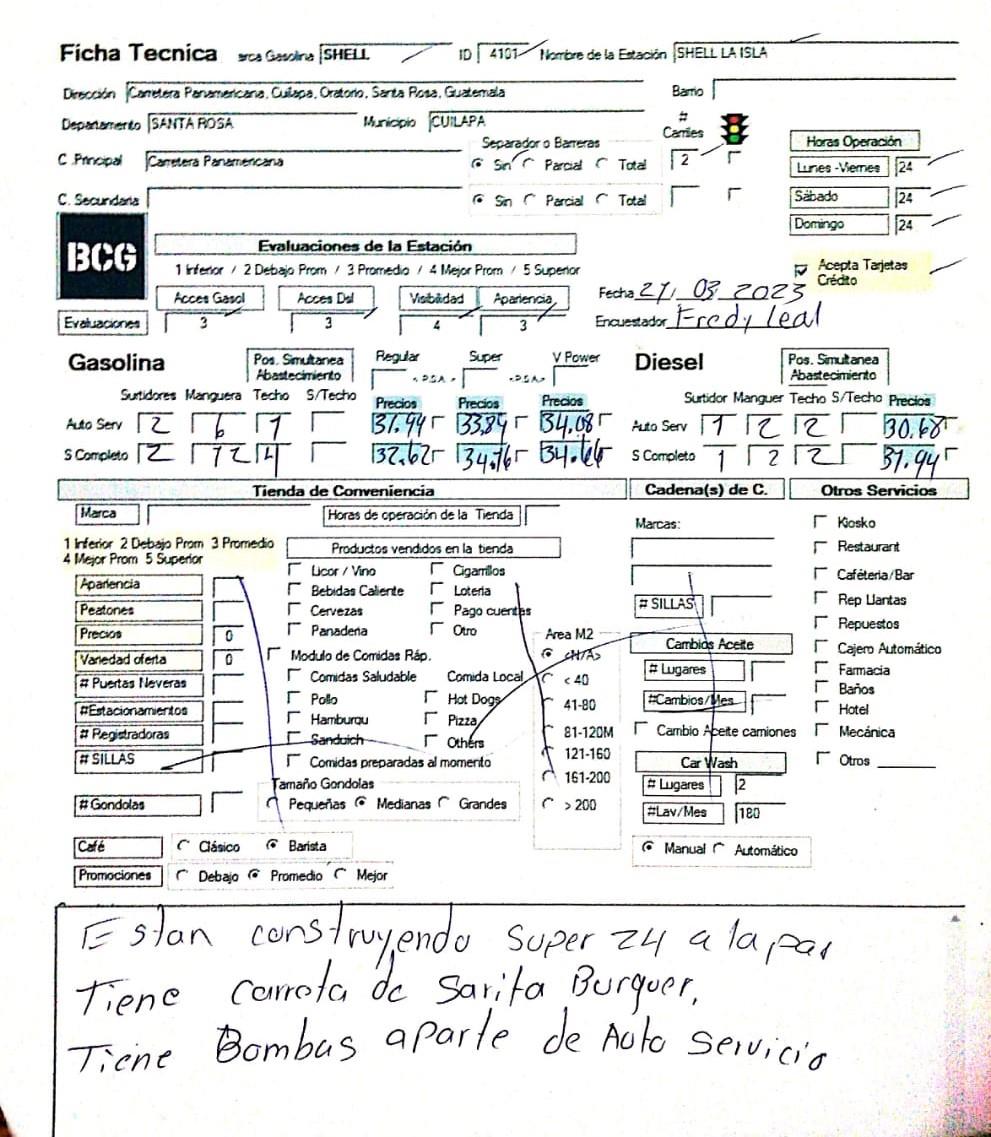 Ficha Tecnica arca Gasolina SHELL ID 4101 Nombre de la Estación SHELL LA ISLA
Dirección Carretera Panamericana, Cuilapa, Oratorio, Santa Rosa, Guatemala Barrio
Departamento SANTA ROSA Municipio CUILAPA # Carriles
Separador o Barreras Horas Operación
C .Principal Carretera Panamericana Sin Parcial Total 2 Lunes -Viernes 24
C. Secundaria Sin Parcial Total Sábado 24
Domingo 24
BCG
Evaluaciones de la Estación
1 Inferior / 2 Debajo Prom / 3 Promedio / 4 Mejor Prom / 5 Superior Acepta Tarjetas Crédito
Acces Gasol Acces Dsl Visibilidad Apariencia Fecha 27, 03 2023
Evaluaciones 3 3 4 3 Encuestador Fredy leal
Gasolina Pos. Simultanea Abastecimiento Regular Super V Power Diesel Pos. Simultanea Abastecimiento
Surtidores Manguera Techo S/Techo Precios Precios Precios Surtidor Manguer Techo S/Techo Precios
Auto Serv 2 6 1 31.94 33.89 34.08 Auto Serv 1 2 2 30.68
S Completo 2 12 4 32.62 34.76 34.66 S Completo 1 2 2 31.94
Tienda de Conveniencia Cadena(s) de C. Otros Servicios
Marca Horas de operación de la Tienda Marcas: Kiosko
1 Inferior 2 Debajo Prom 3 Promedio Productos vendidos en la tienda Restaurant
4 Mejor Prom 5 Superior
Licor / Vino Cigarrillos Caféteria/Bar
Apariencia Bebidas Caliente Loteria
Peatones Cervezas Pago cuentas # SILLAS Rep Llantas
Precios 0 Panaderia Otro Area M2 Repuestos
Variedad oferta 0 Modulo de Comidas Ráp. <N/A> Cambios Aceite Cajero Automático
# Puertas Neveras Comidas Saludable Comida Local < 40 # Lugares Farmacia
#Estacionamientos Pollo Hot Dogs 41-80 #Cambios/Mes Baños
# Registradoras Hamburqu Pizza 81-120M Cambio Aceite camiones Hotel
# SILLAS Sanduich Othérs 121-160 Car Wash Mecánica
Comidas preparadas al momento 161-200 # Lugares 2 Otros
Tamaño Gondolas
# Gondolas Pequeñas Medianas Grandes > 200 #Lav/Mes 180
Café Clásico Barista Manual Automático
Promociones Debajo Promedio Mejor
Estan construyendo super 24 a la par
Tiene carreta de Sarita Burguer,
Tiene Bombas aparte de Auto servicio